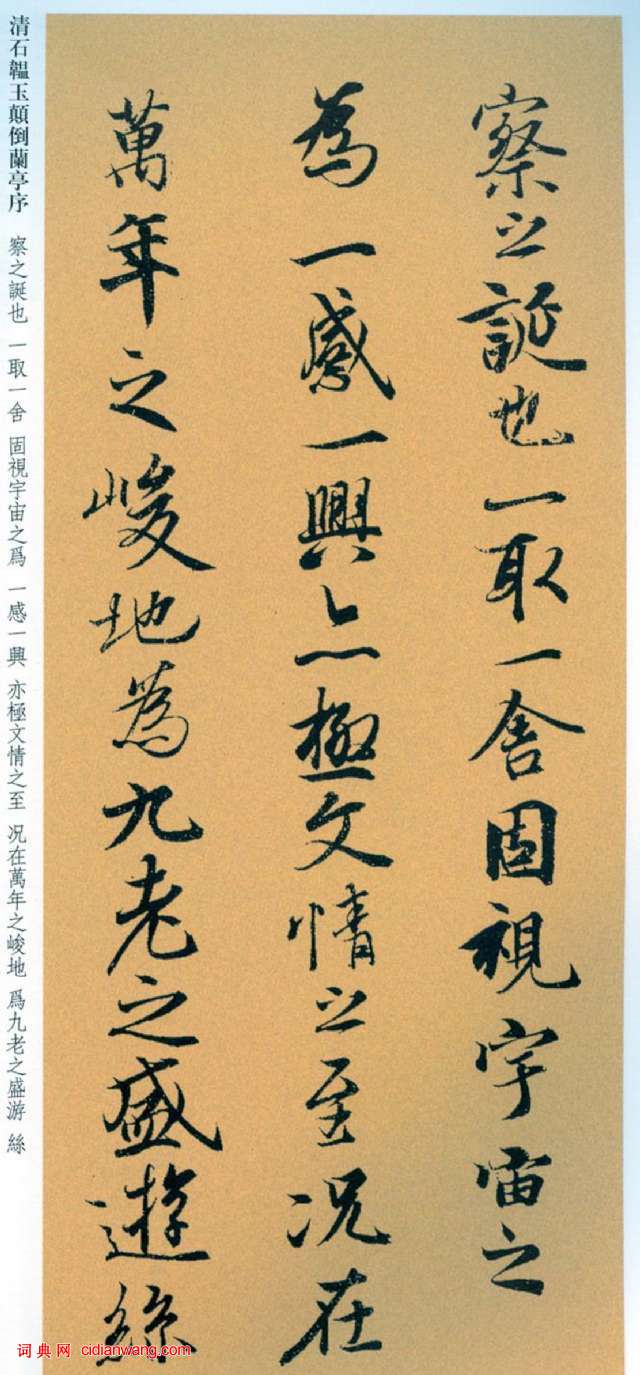 察之誕也一取一舍固視宇宙之
為一感一興亦極文情之至況在
萬年之峻地為九老之盛遊絲
清石韞玉顛倒蘭亭序 察之誕也 一取一舍 固視宇宙之爲 一感一興 亦極文情之至 况在萬年之峻地 爲九老之盛游 絲
词典网 cidianwang.com